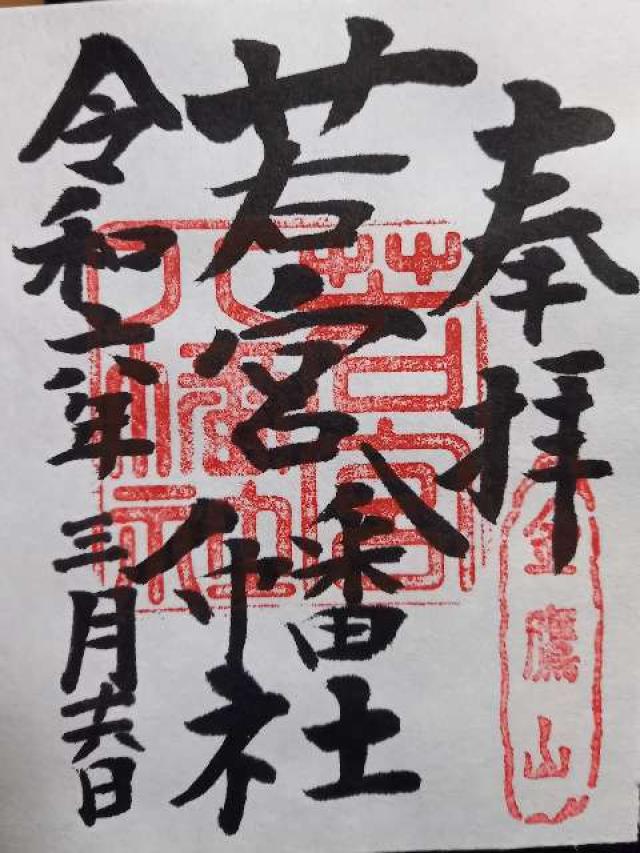 奉拝
金鷹山
若宮八幡社
若宮八幡社
令和六年三月十六日